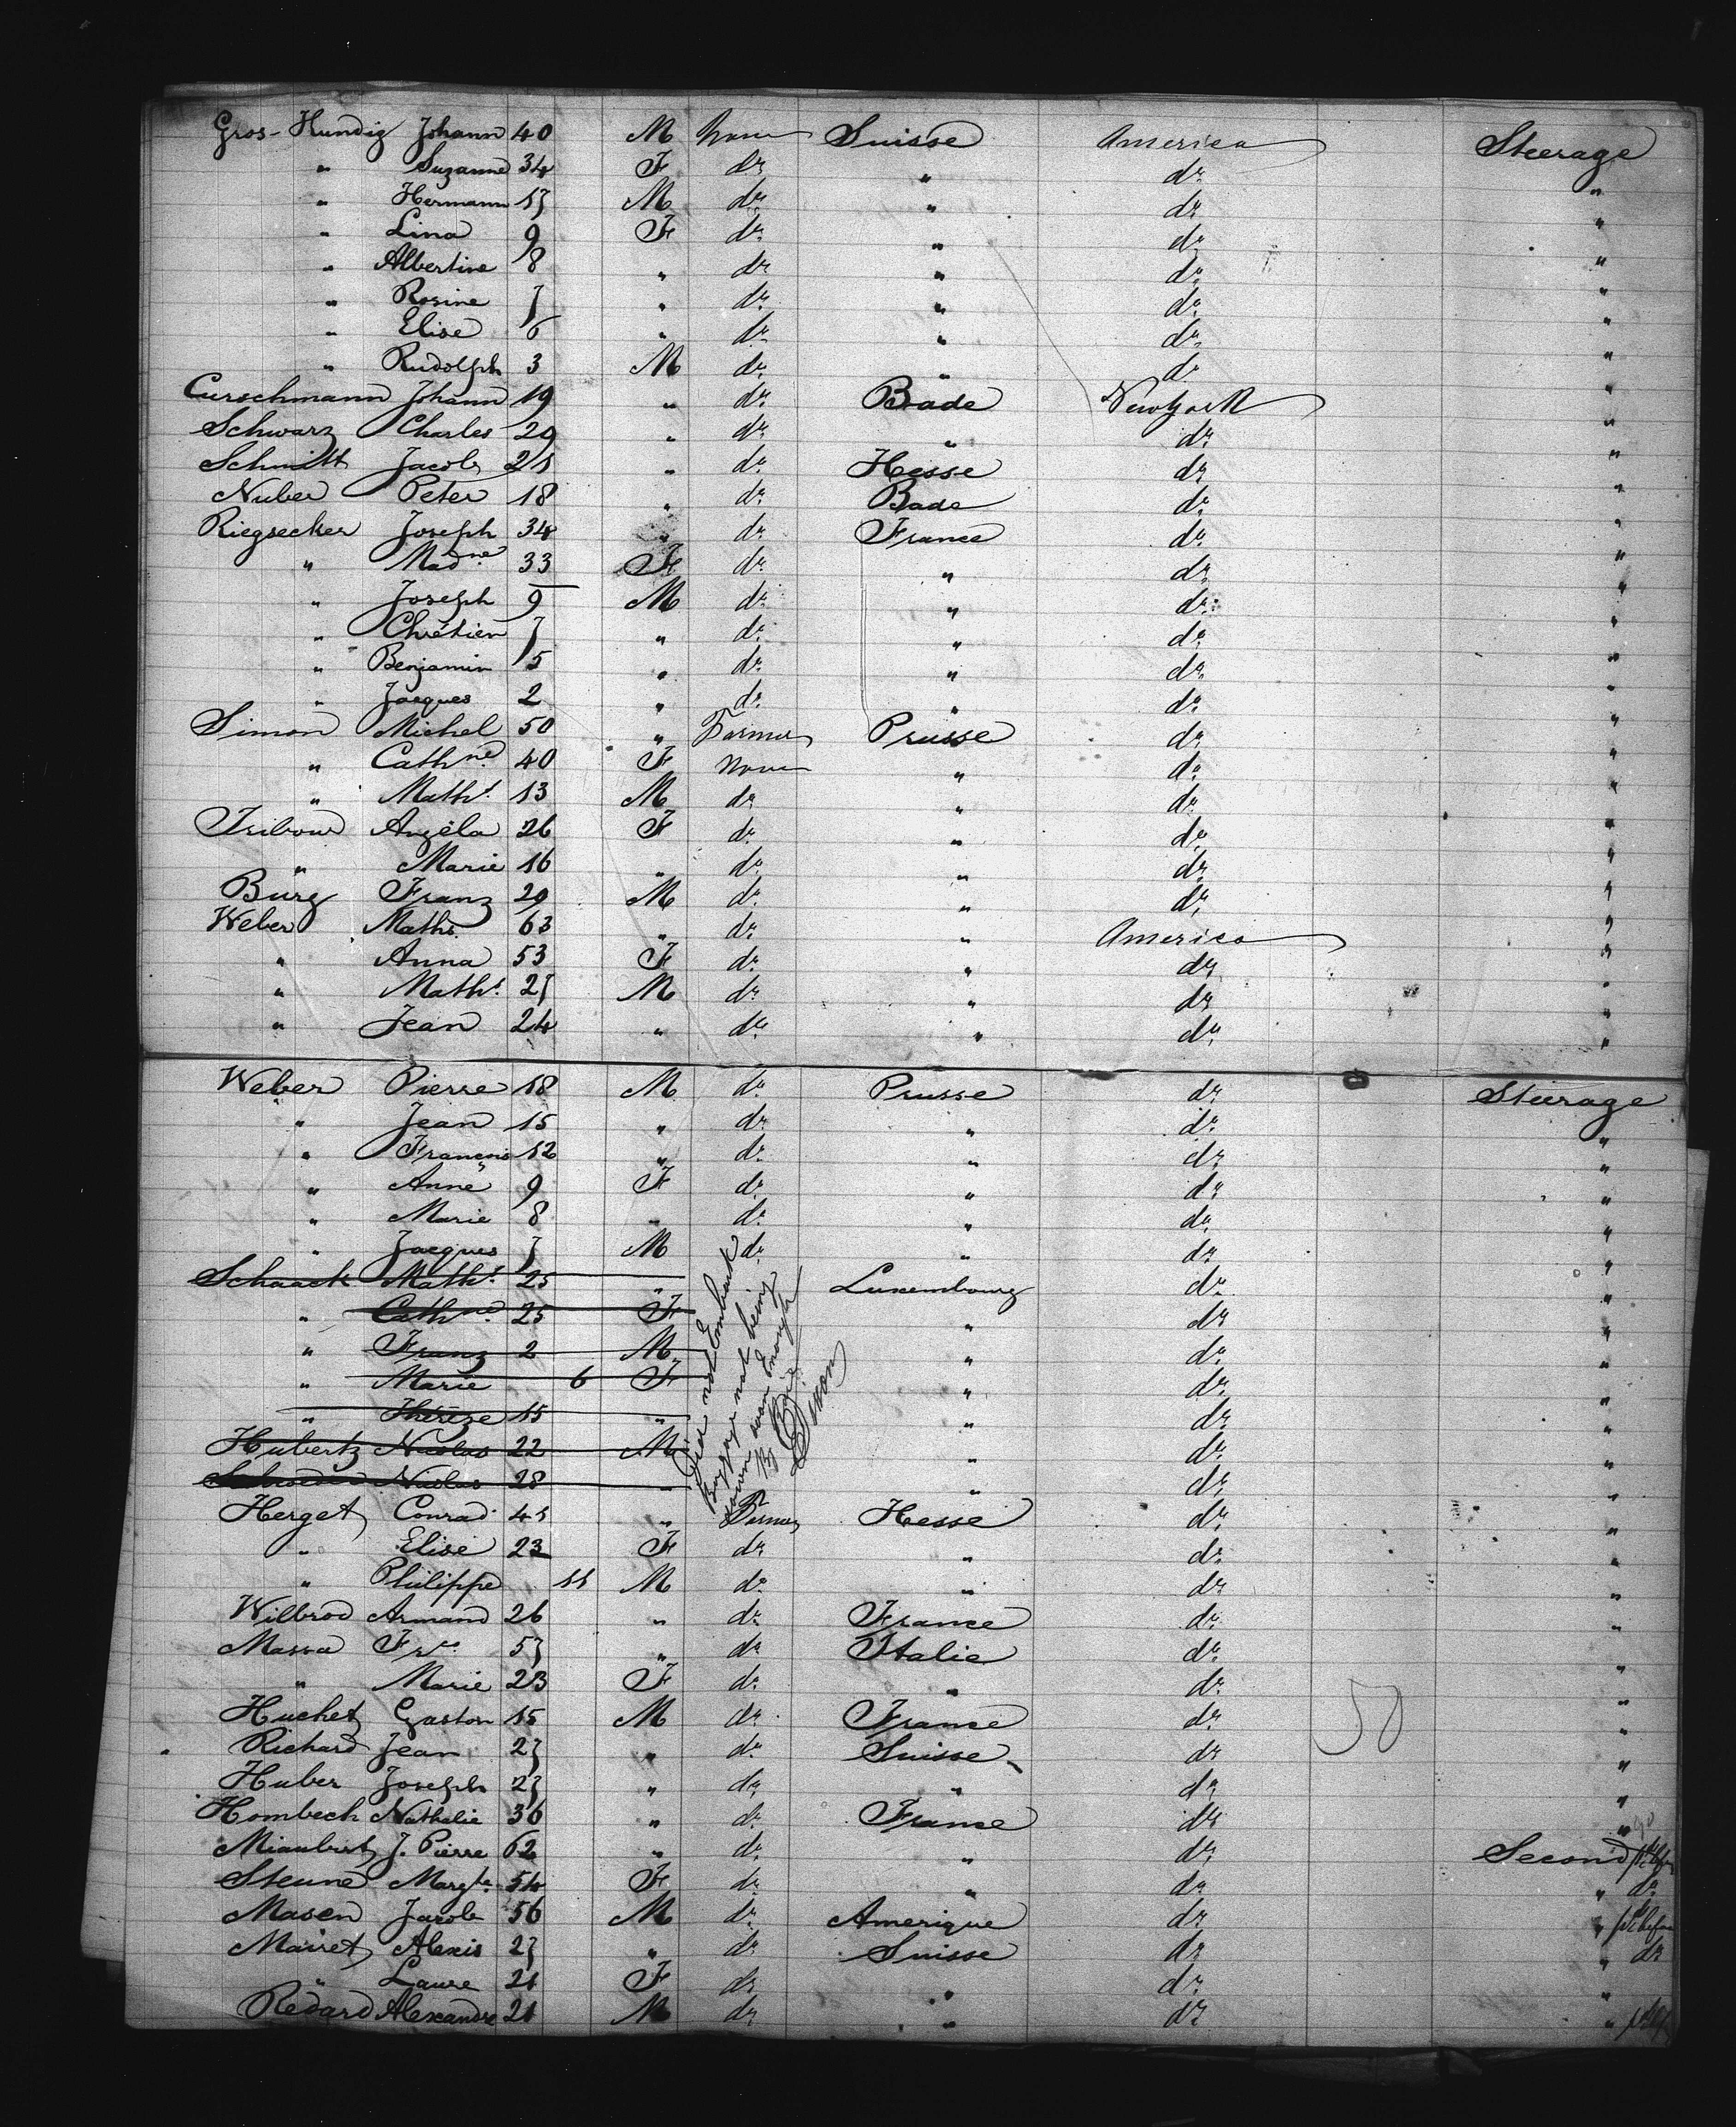 Gros-Hundig Johann 40 M None Suisse America Steerage
" Suzanne 34 F do " do "
" Hermann 17 M do " do "
" Lina 9 F do " do "
" Albertine 8 " do " do "
" Rosine 7 " do " do "
" Elise 6 " do " do "
" Rudolph 3 M do " do "
Curschmann Johann 19 " do Bade New York "
Schwarz Charles 29 " do " do "
Schmitt Jacob 21 " do Hesse do "
Nuber Peter 18 " do Bade do "
Riegsecker Joseph 34 " do France do "
" Mad.ne 33 F do " do "
" Joseph 9 M do " do "
" Chrétien 7 " do " do "
" Benjamin 5 " do " do "
" Jacques 2 " do " do "
Simon Michel 50 " Farmer Prusse do "
" Cathne 40 F None " do "
" Math.s 13 M do " do "
Tribour Angéla 26 F do " do "
" Marie 16 " do " do "
Burg Franz 29 M do " do "
Weber Maths. 63 " do " America "
" Anna 53 F do " do "
" Math.s 27 M do " do "
" Jean 24 " do " do "
Weber Pierre 18 M do Prusse do Steerage
" Jean 15 " do " do "
" François 12 " do " do "
" Anne 9 F do " do "
" Marie 8 " do " do "
" Jacques 7 M do " do "
Schaack Math.s 25 " Luxembourg do "
" Cathne 25 F " do "
" Franz 2 M " do "
" Marie 6 F " do "
" Thérèze 15 " " do "
Hubertz Nicolas 22 M " do "
Schroeder Nicolas 28 " " do "
Did not Embark
Baggage not being
down soon Enough
Dixon
Herget Conrad 41 " Farmer Hesse do "
" Elise 23 F do " do "
" Philippe 11 M do " do "
Wilbrod Armand 26 " do France do "
Massa Frs. 57 " do Italie do "
" Marie 23 F do " do "
Huchet Gaston 15 M do France do "
Richard Jean 27 " do Suisse do "
Huber Joseph 27 " do " do "
Hombech Nathalie 36 " do France do "
Miaubert J. Pierre 62 " do " do Second
Steune Margte. 54 F do " do " do
Masen Jacob 56 M do Amerique do "
Mairet Alexis 27 " do Suisse do " do
" Laure 21 F do " do "
Redard Alexandre 21 M do " do "
50